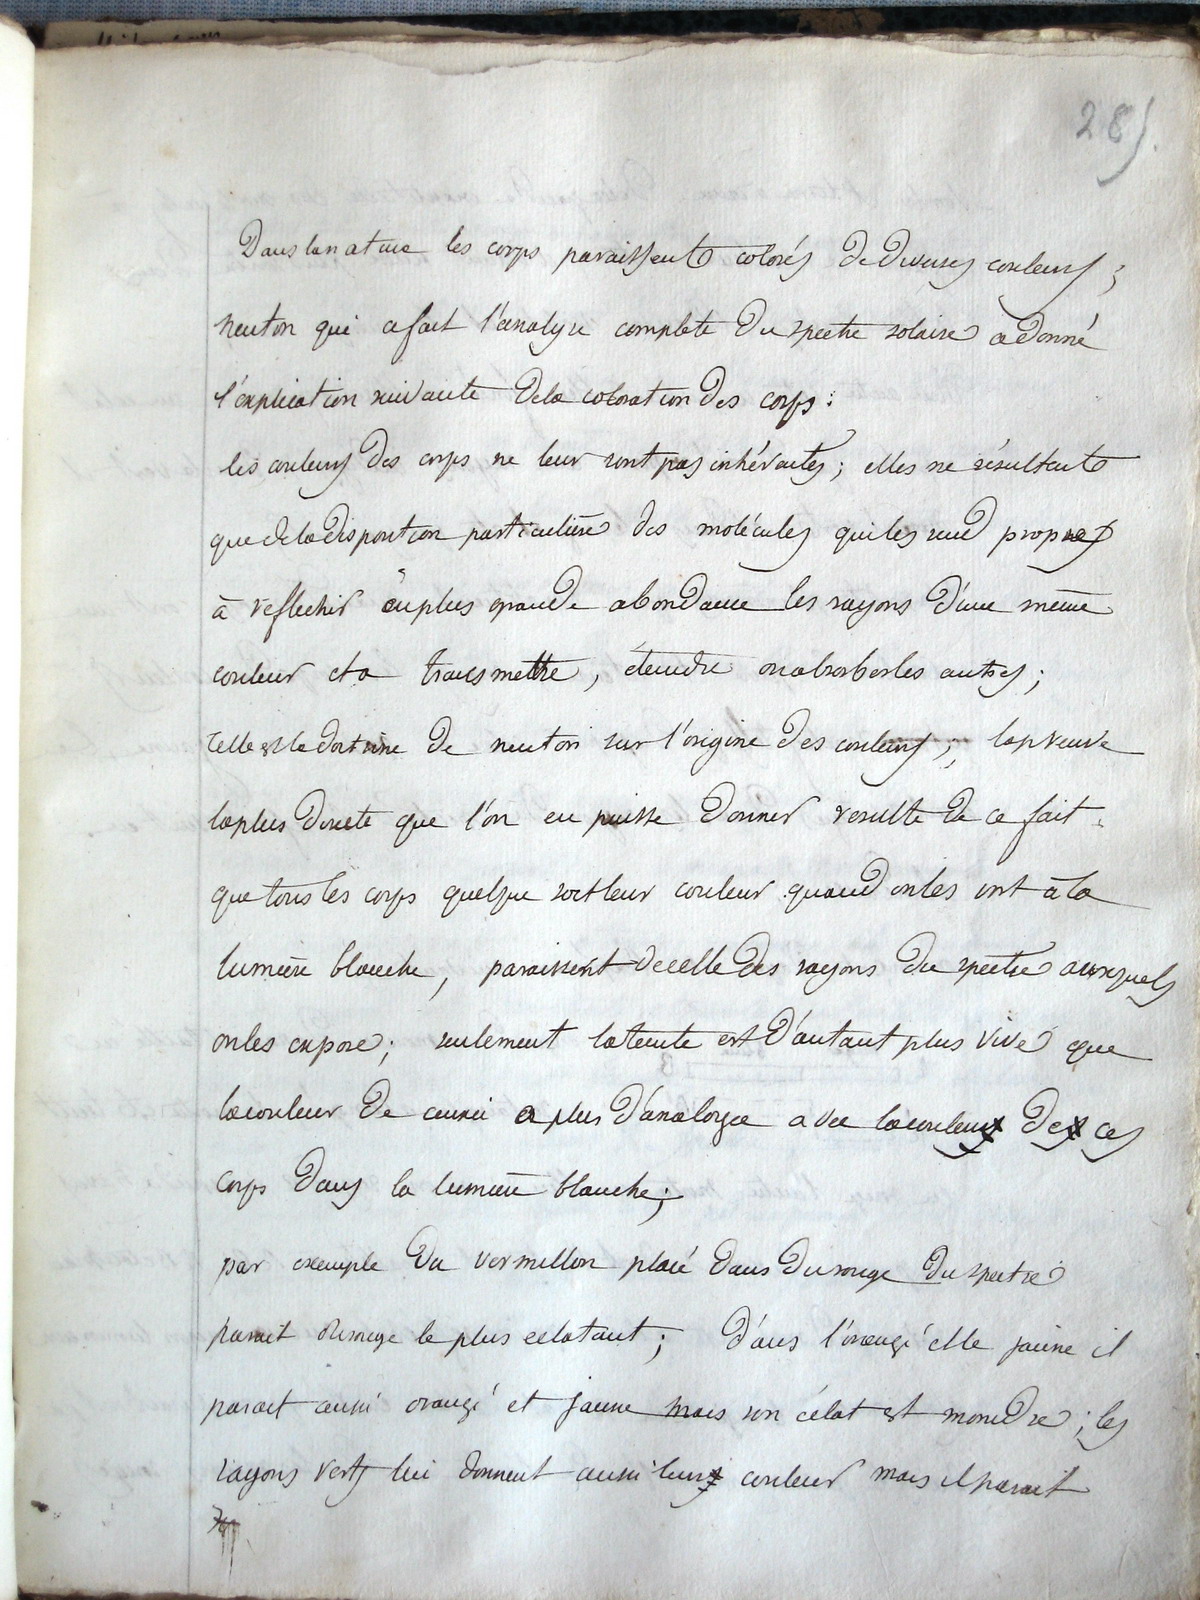 285.
Dans la nature les corps paraissent colorés de diverses couleurs;
neuton qui a fait l'analyse complete du spectre solaire a donné
l'explication suivante de la coloration des corps:
les couleurs des corps ne leur sont pas inhérentes; elles ne résultent
que de la disposition particulière des molécules qui les rend propres
à reflechir en plus grande abondance les rayons d'une même
couleur et a transmettre, éteindre ou absorber les autres;
Telle est la doctrine de neuton sur l'origine des couleurs; la preuve
la plus directe que l'on en puisse donner resulte de ce fait
que tous les corps quelque soit leur couleur quand on les voit à la
lumière blanche, paraissent de celle des rayons du spectre auxquels
on les expose; seulement la teinte est d'autant plus vive que
la couleur de ceux ci a plus d'analogie avec la couleur de ces
corps dans la lumière blanche;
par exemple du vermillon placé dans du rouge du spectre
parait du rouge le plus eclatant; dans l'orangé et le jaune il
parait aussi orangé et jaune mais son éclat est moindre; les
rayons verts lui donnent aussi leur couleur mais il parait